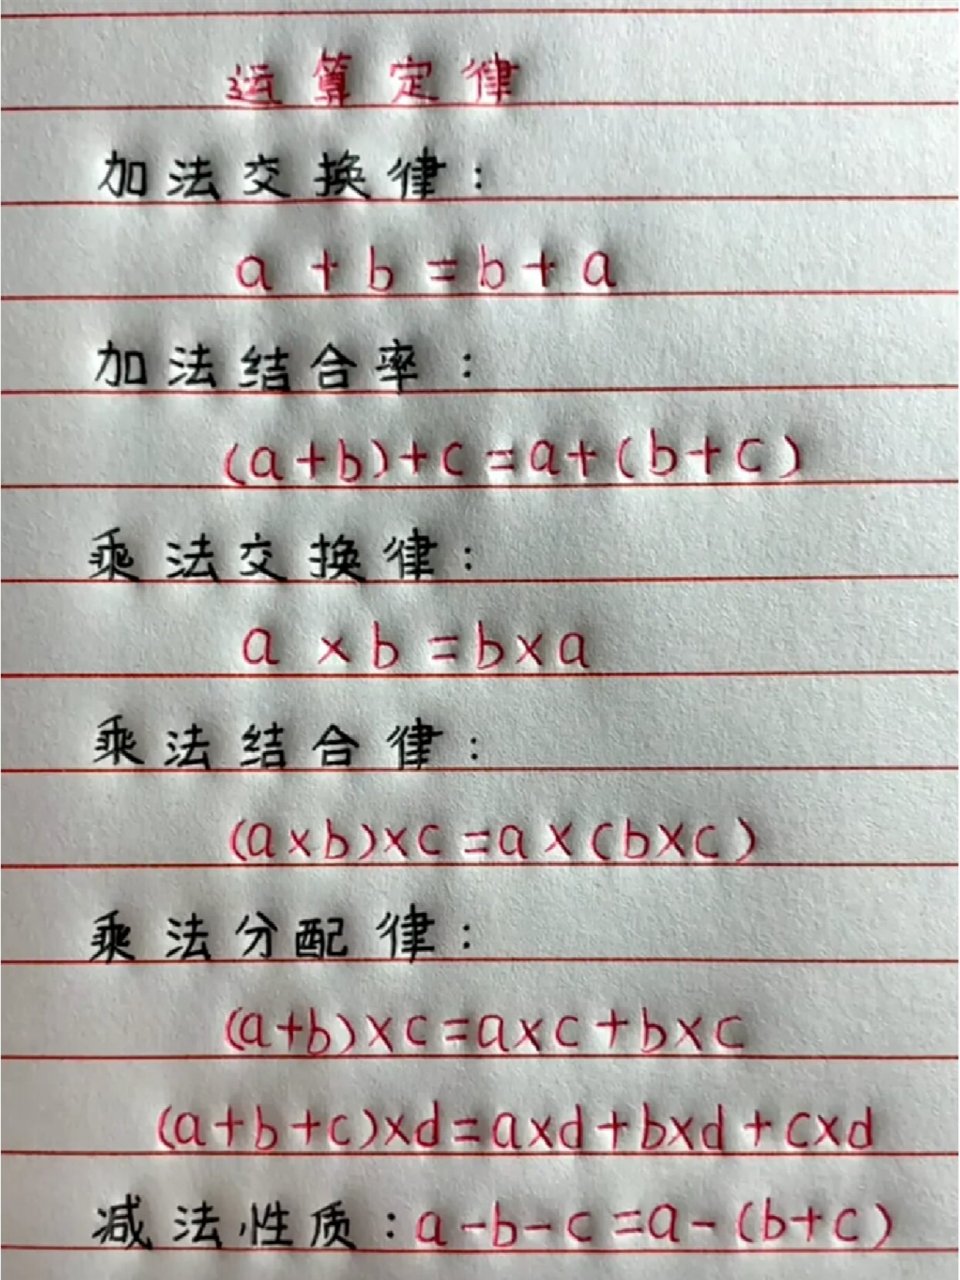 运算定律
加法交换律:
a + b = b + a
加法结合率:
(a+b)+c=a+(b+c)
乘法交换律:
a × b = b×a
乘法结合律:
(a×b)×c=a×(b×c)
乘法分配律:
(a+b)×c=a×c+b×c
(a+b+c)×d=a×d+b×d+c×d
减法性质:a-b-c=a-(b+c)